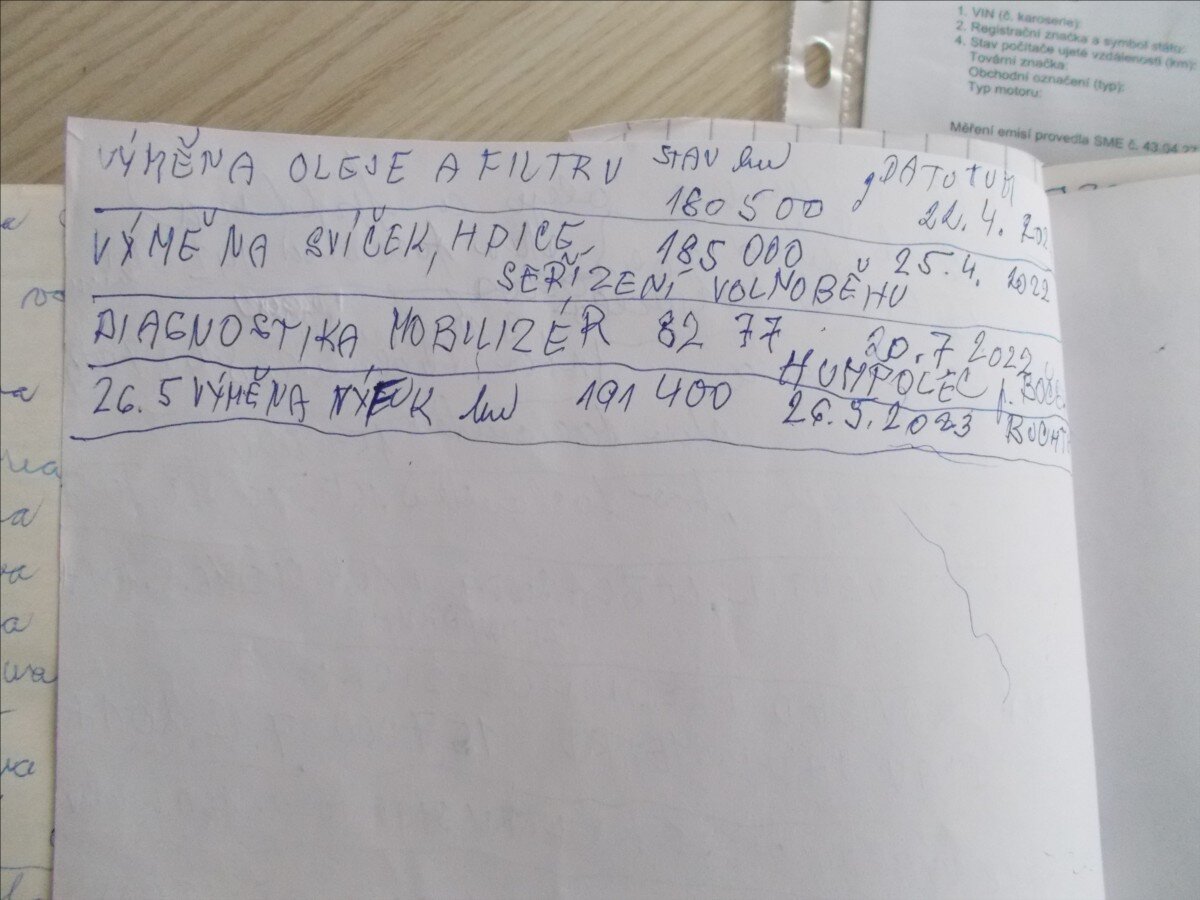 1. VIN (č. karoserie):
2. Registrační značka a symbol státu:
4. Stav počítače ujeté vzdálenosti (km):
Tovární značka:
Obchodní označení (typ):
Typ motoru:
Měření emisí provedla SME č. 43.04.27
VÝMĚNA OLEJE A FILTRU STAV km DATUTUM
180 500 22. 4. 202
VÝMĚNA SVÍČEK, 185 000 25. 4. 2022
SEŘÍZENÍ VOLNOBĚHU
DIAGNOSTIKA MOBILIZÉR 82 77 20. 7 2022
HUMPOLEC p.
26. 5 VÝMĚNA km 191 400 26. 5. 2023